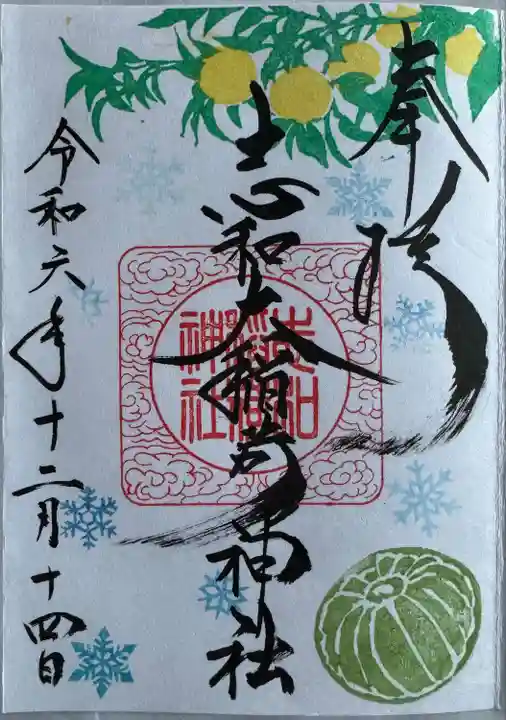 奉拝
志和大稲荷神社
令和六年十二月十四日